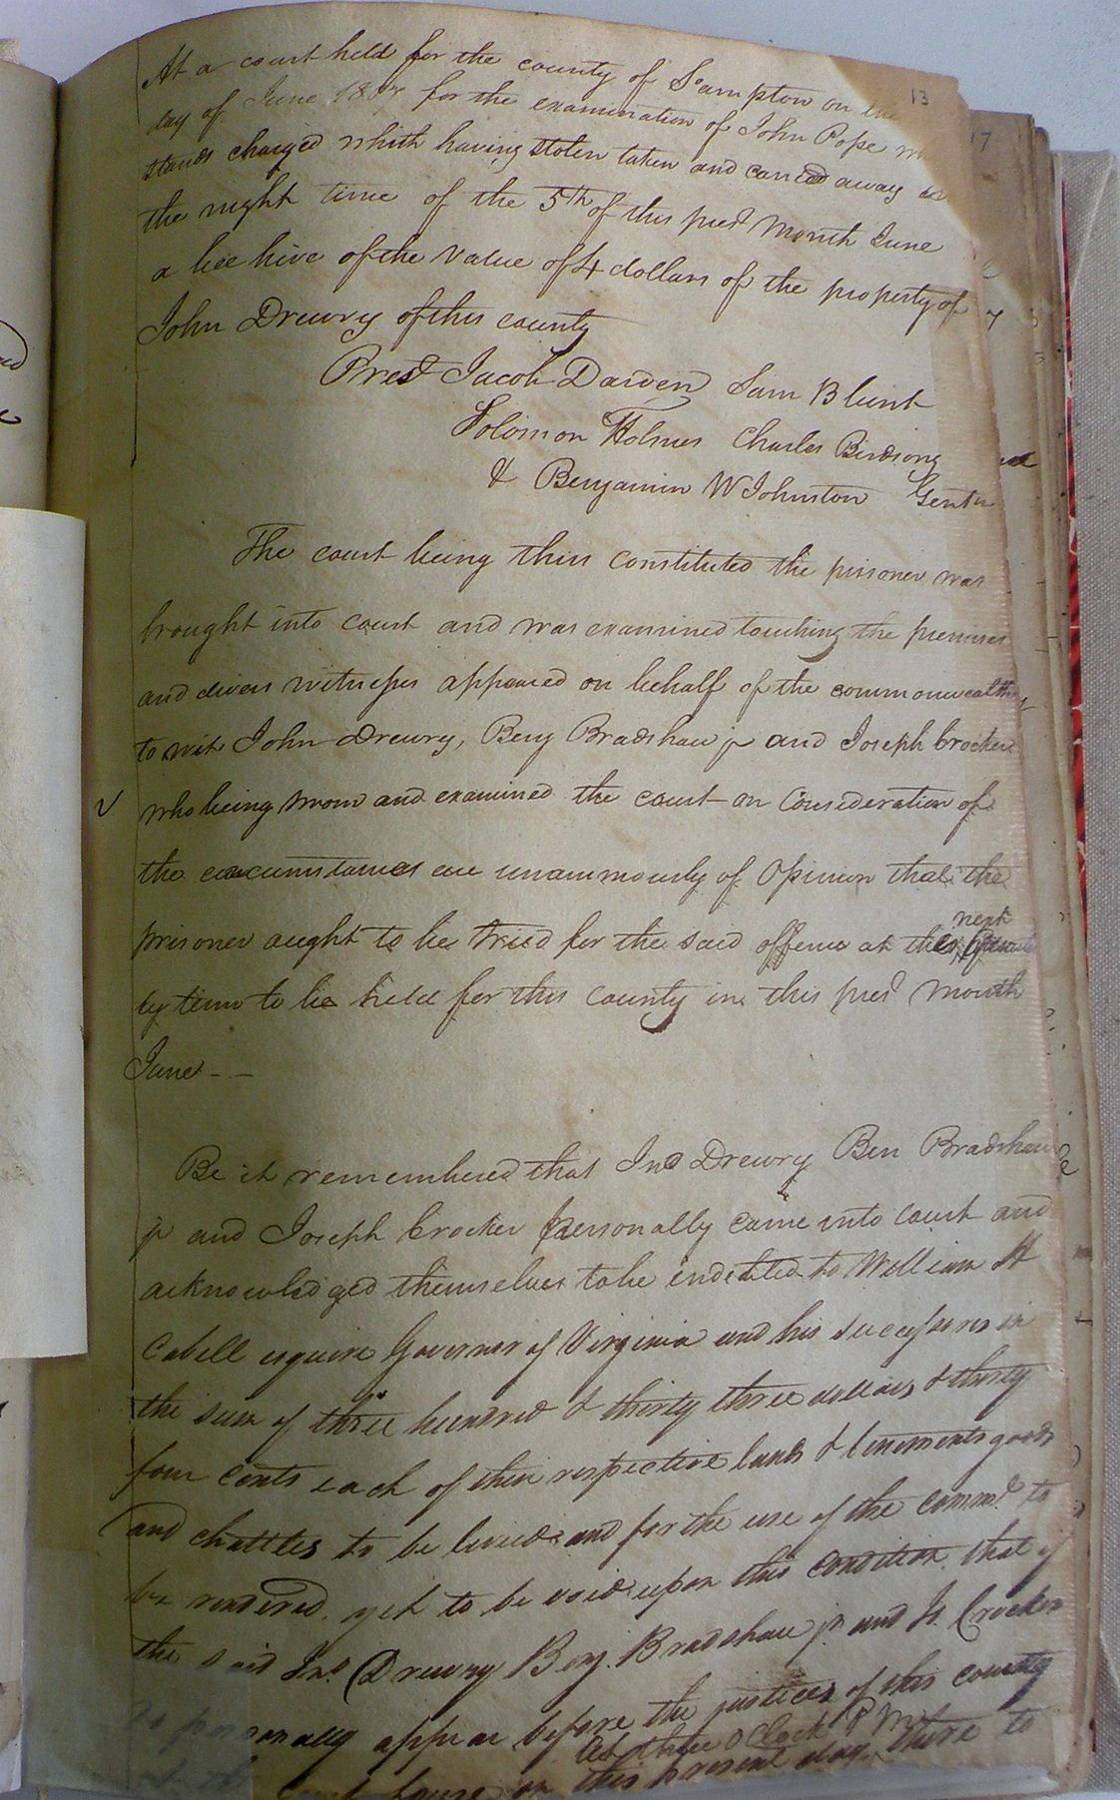 13
At a court held for the county of Sampton on the
day of June 1807 for the examination of John Pope
stands charged whith having stolen taken and carried away in
the night time of the 5th of this prest Month June
a bee hive of the value of 4 dollars of the property of
John Drewry of this county
Prest Jacob Darden Sam Blunt
Solomon Holmes Charles Birdsong
& Benjamin W Johnston Gentn
The court being thus constituted the prisoner was
brought into court and was examined touching the premises
and divers witnesses appeared on behalf of the commonwealth
to wit John Drewry, Benj Bradshaw jr and Joseph Crocker
who being sworn and examined the court on Consideration of
the circumstances are unanimously of Opinion that the
prisoner aught to be tried for the said offence at the
next
ly term to be held for this county in this prest month
June - -
Be it remembered that Jno Drewry Ben Bradshaw
jr and Joseph Crocker personally came into court and
acknowledged themselves to be indebted to William H
Cabell esquire Governor of Virginia and his successors in
the sum of three hundred & thirty three dollars & thirty
four cents each of their respective lands & tenements goods
and chattles to be levied and for the use of the commd. to
be rendered, yet to be void upon this condition, that if
the said Jno. Drewry Benj. Bradshaw jr. and Js. Crocker
personally appear before the justices of this county
at three o Clock P M
house on this present day there to